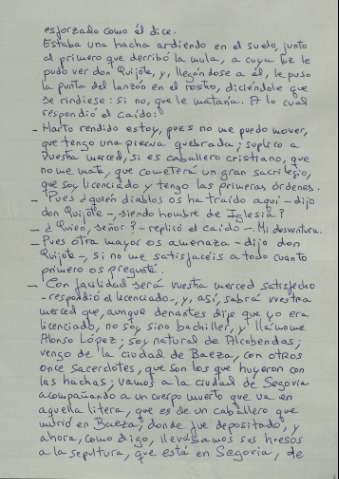 esforzado como él dice.
Estaba una hacha ardiendo en el suelo, junto
al primero que derribó la mula, a cuya luz le
pudo ver don Quijote, y, llegándose a él, le puso
la punta del lanzón en el rostro, diciéndole que
se rindiese: si no, que le mataría. A lo cual
respondió el caído:
- Harto rendido estoy, pues no me puedo mover,
que tengo una pierna quebrada; suplico a
vuestra merced, si es caballero cristiano, que
no me mate, que cometerá un gran sacrilegio,
que soy licenciado y tengo las primeras órdenes.
- Pues ¿quién diablos os ha traído aquí - dijo
don Quijote -, siendo hombre de Iglesia?
- ¿Quién, señor? - replicó el caído -. Mi desventura.
- Pues otra mayor os amenaza - dijo don
Quijote -, si no me satisfacéis a todo cuanto
primero os pregunté.
- Con facilidad será vuestra merced satisfecho
- respondió el licenciado -, y, así, sabrá vuestra
merced que, aunque denantes dije que yo era
licenciado, no soy sino bachiller, y llámome
Alonso López; soy natural de Alcobendas;
vengo de la ciudad de Baeza, con otros
once sacerdotes, que son los que huyeron con
las hachas; vamos a la ciudad de Segovia
acompañando a un cuerpo muerto que va en
aquella litera, que es de un caballero que
murió en Baeza, donde fue depositado, y
ahora, como digo, llevábamos sus huesos
a la sepultura, que está en Segovia, de